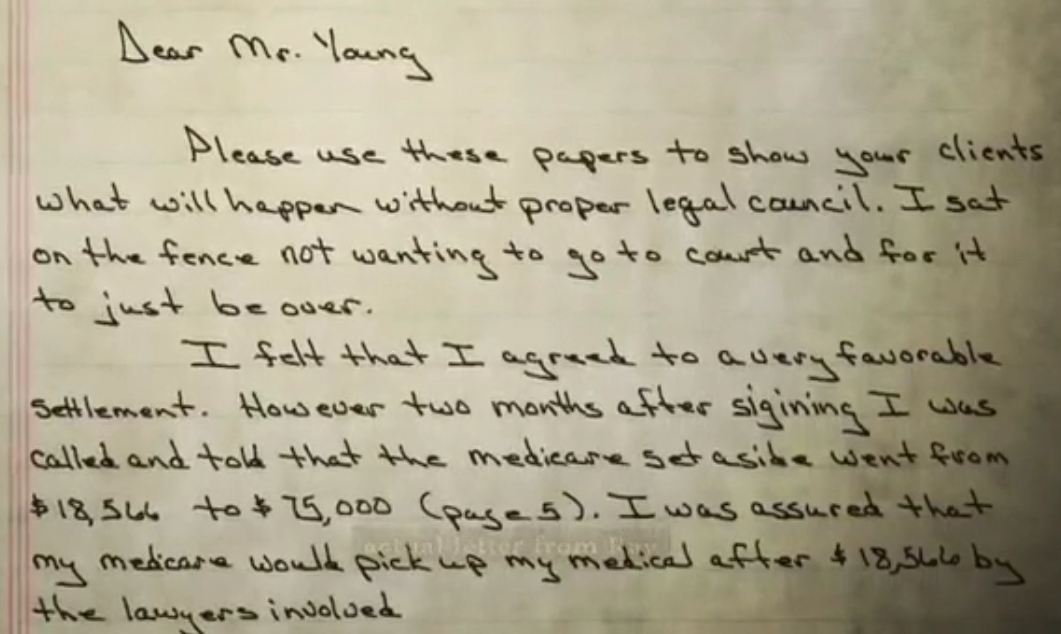 Dear Mr. Young
Please use these papers to show your clients
what will happen without proper legal council. I sat
on the fence not wanting to go to court and for it
to just be over.
I felt that I agreed to a very favorable
settlement. However two months after sigining I was
called and told that the medicare set aside went from
$18,566 to $75,000 (page 5). I was assured that
actual letter from Ray
my medicare would pick up my medical after $18,566 by
the lawyers involved